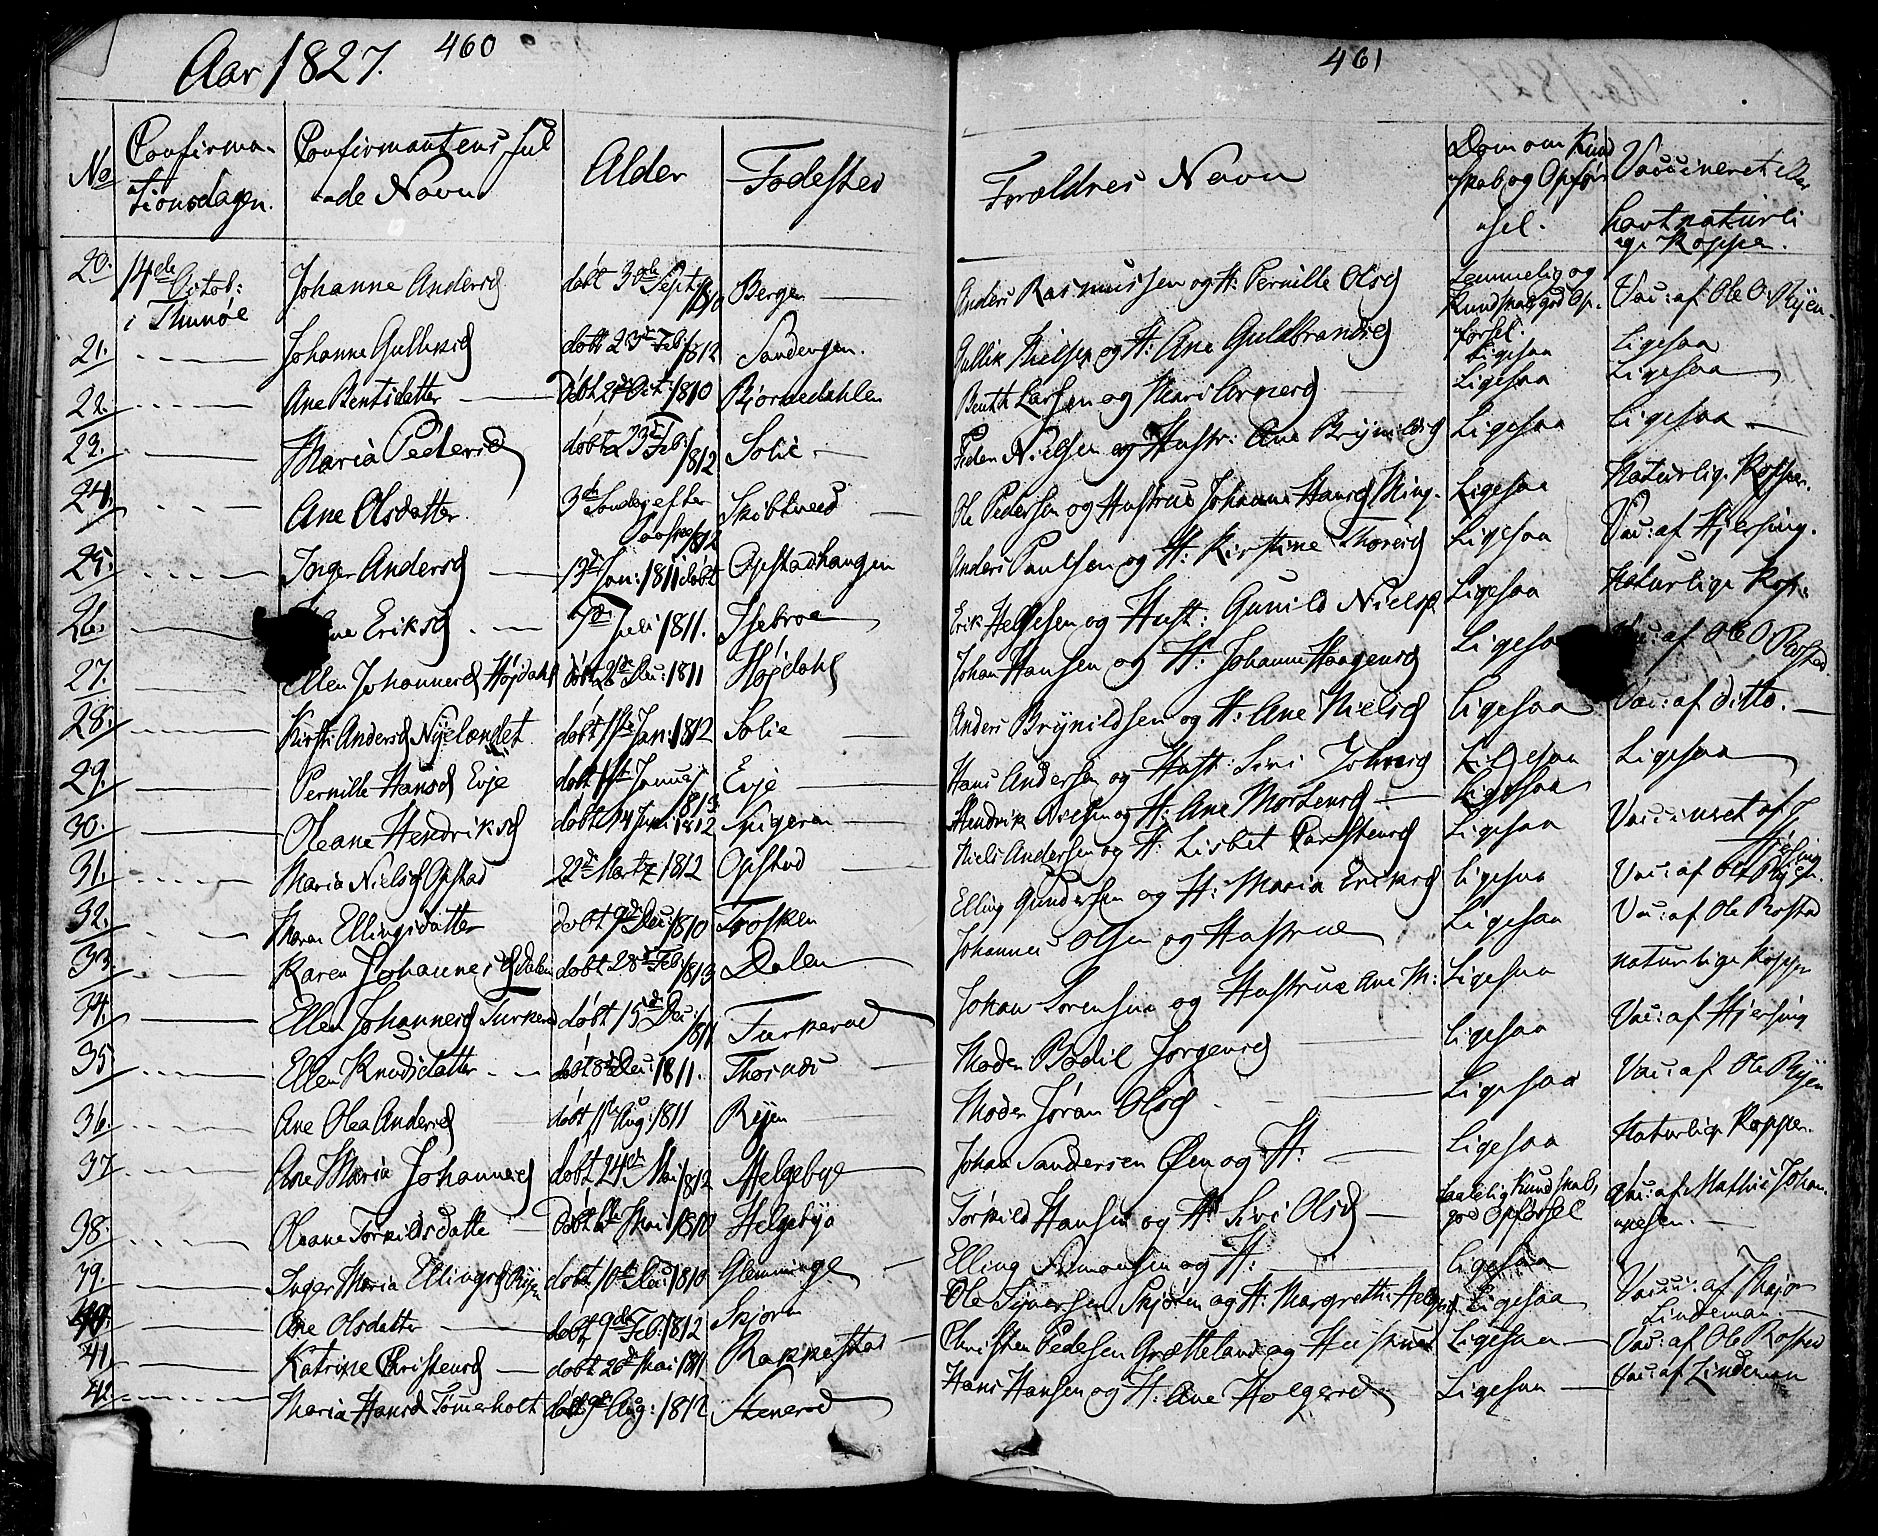 Aar 1827.
460
No
Confirma-
tionsdagen.
Confirmantens ful
de Navn
Alder
Fodested
20. 14de Octob: i Thunøe Johanne Andersd døbt 30de Septbr 1810 Bergen
21. Johanne Gulliksd døbt 23de Feb: 1812 Sandengen.
22. Ane Bentsdatter Døbt 2de Oct: 1810 Bjørnedahlen
23. Maria Pedersd døbt 23de Feb: 1812 Solie
24. Ane Olsdatter 3de Søndag efter Paaske 1812 Skibtveed
25. Inger Andersd 13de Jan: 1811 døbt Opstadhaugen
26. Eriksd 7de Juli 1811. Isebroe
27. Ellen Johannesd Højdahl døbt 26de Dec: 1811 Højdahl
28. Kirsti Andersd Nyelændet døbt 1ste Jan: 1812 Solie
29. Pernille Hansd Evje døbt 1ste Januar 1813 Evje
30. Oleane Hendriksd døbt 14 Juni 1812
31. Maria Nielsd Opstad 22de Martz 1812 Opstad
32. Maren Ellingsdatter døbt 9de Dec: 1810 Trosken
33. Karen Johannesd Dalen døbt 28de Feb: 1813 Dalen
34. Ellen Johannesd Turkerød døbt 15de Dec: 1811 Turkerød
35. Ellen Knudsdatter døbt 8de Dec: 1811.
36. Ane Olea Andersd døbt 11te Aug: 1811 Ryen
37 Ane Maria Johannesd døbt 24de Mai 1812 Helgebye
38. Oleane Torkildsdatte Døbt Mai 1810 Helgebye
39. Inger Maria Ellingsd Ryen døbt 10de Dec: 1810 Glemminge
40. Ane Olsdatter døbt 9de Feb: 1812 Skjøren
41 Katrine Christensd døbt 26de Mai 1811 Rakkestad
42 Maria Hansd Tomerholt døbt 9de Aug: 1812 Stenerød
461
Forældres Navn
Dom om Kund
skab og Opfør
sel.
Vaccineret eller
havt naturli
ge Kopper.
Anders Rasmussen og H: Pernille Olsd Temmelig og Kundskab god Op. førsel. Vac: af Ole O: Ryen.
Gullik Nielsen og H: Ane Guldbrandsd Ligesaa Ligesaa
Benth Larsen og Mari Ligesaa Ligesaa
Peder Nielsen og Hustr: Ane Brynilds Ligesaa Ligesaa
Ole Pedersen og Hustrue Johanne Hansd Ming. Ligesaa Naturlige Kopper.
Anders Paulsen og H: Kirstine Thoresd Ligesaa Vac: af Hjersing.
Erik Helgesen og Hust: Gunild Niels Ligesaa Naturlige Kop:
Johan Hansen og H: Johanne Haagensd Ligesaa Vac: af Ole O: Rostad
Anders Brynildsen og H: Ane Nielsd Ligesaa Vac: af ditto.
Hans Andersen og Hust: Sivi Ligesaa Ligesaa
Hendrik Nielsen og H: Ane Mortensd Ligesaa Vaccineret af J. Hjersing
Niels Andersen og H: Lisbet Carstensd Ligesaa Vac: af Ole Ryen.
Elling Gundersen og H: Maria Eriksd Ligesaa Vac: af Ole Rostad
Johannes Olsen og Hustrue Ligesaa naturlige Kopper
Johan Sørensen og Hustrue Ane M: Ligesaa Vac: af Hjersing
Moder Bodil Jørgensd Ligesaa Vac: af Ole Ryen
Moder Jøran Olsd Ligesaa Naturlige Kopper.
Johan Sandersen Øen og H: Ligesaa
Torkild Hansen og H: Sivi Olsd taalelig Kundskab, god Opførsel Vac: af Mathis Johan. nesen.
Elling Simonsen og H: Ligesaa Vacci: af Major Lindeman.
Ole Syversen Skjøren og H: Margrethe Ligesaa
Christen Pedersen Grætteland og Hustrue Ligesaa Vac: af Ole Rostad
Hans Hansen og H: Ane Holgersd Ligesaa Vac: af Lindeman